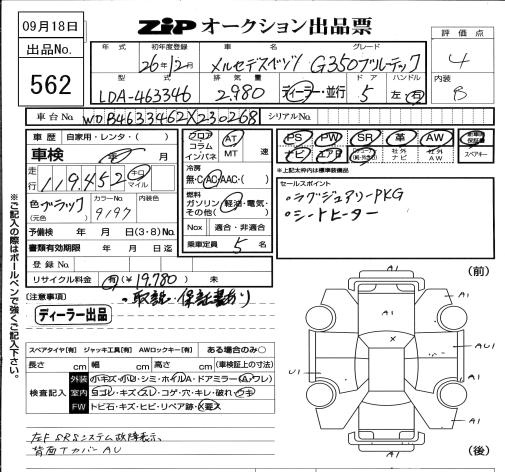 09月18日
ZIP オークション出品票
評価点
4
出品No.
562
年式
初年度登録
車名
グレード
26年12月
メルセデスベンツ
G350ブルーテック
内装
B
型式
排気量
ドア
ハンドル
LDA-463346
2,980
ディーラー・並行
5
左・右
車台No.
WDB4633462X230268
シリアルNo.
車歴
自家用・レンタ・( )
車検
年 月
走行
119,452
キロ
マイル
色
ブラック
(元色)
カラーNo.
9197
内装色
予備検 年 月 日(3・8)No.
書類有効期限 年 月 日迄
登録No.
リサイクル料金 有(¥19,780) 未
フロア
コラム
インパネ
AT
MT
速
冷房
無・C・AC・AAC・( )
燃料
ガソリン・軽油・電気・
その他( )
Nox
適合・非適合
乗車定員 5 名
PS
PW
SR
革
AW
ナビ
エアB
社外
ナビ
社外
AW
スペアキー
*上記太枠内は標準装備品
セールスポイント
・ラグジュアリーPKG
・シートヒーター
(注意事項)
・取説・保証書あり
ディーラー出品
スペアタイヤ[有] ジャッキ工具[有] AWロックキー[有] ある場合のみ○
長さ cm 幅 cm 高さ cm (車検証上の寸法)
検査記入
外装
小キズ・小U・シミ・ホイルA・ドアミラー(A・ワレ)
室内
ヨゴレ・キズ・スレ・コゲ・穴・キレ・破れ・ウキ
FW
トビ石・キズ・ヒビ・リペア跡・X要入
左F SRSシステム故障表示、
背面TカバーAU
(前)
A1
A1
A1
X
A1
AU1
U1
A1
A1
(後)
※ご記入の際はボールペンで強くご記入下さい。